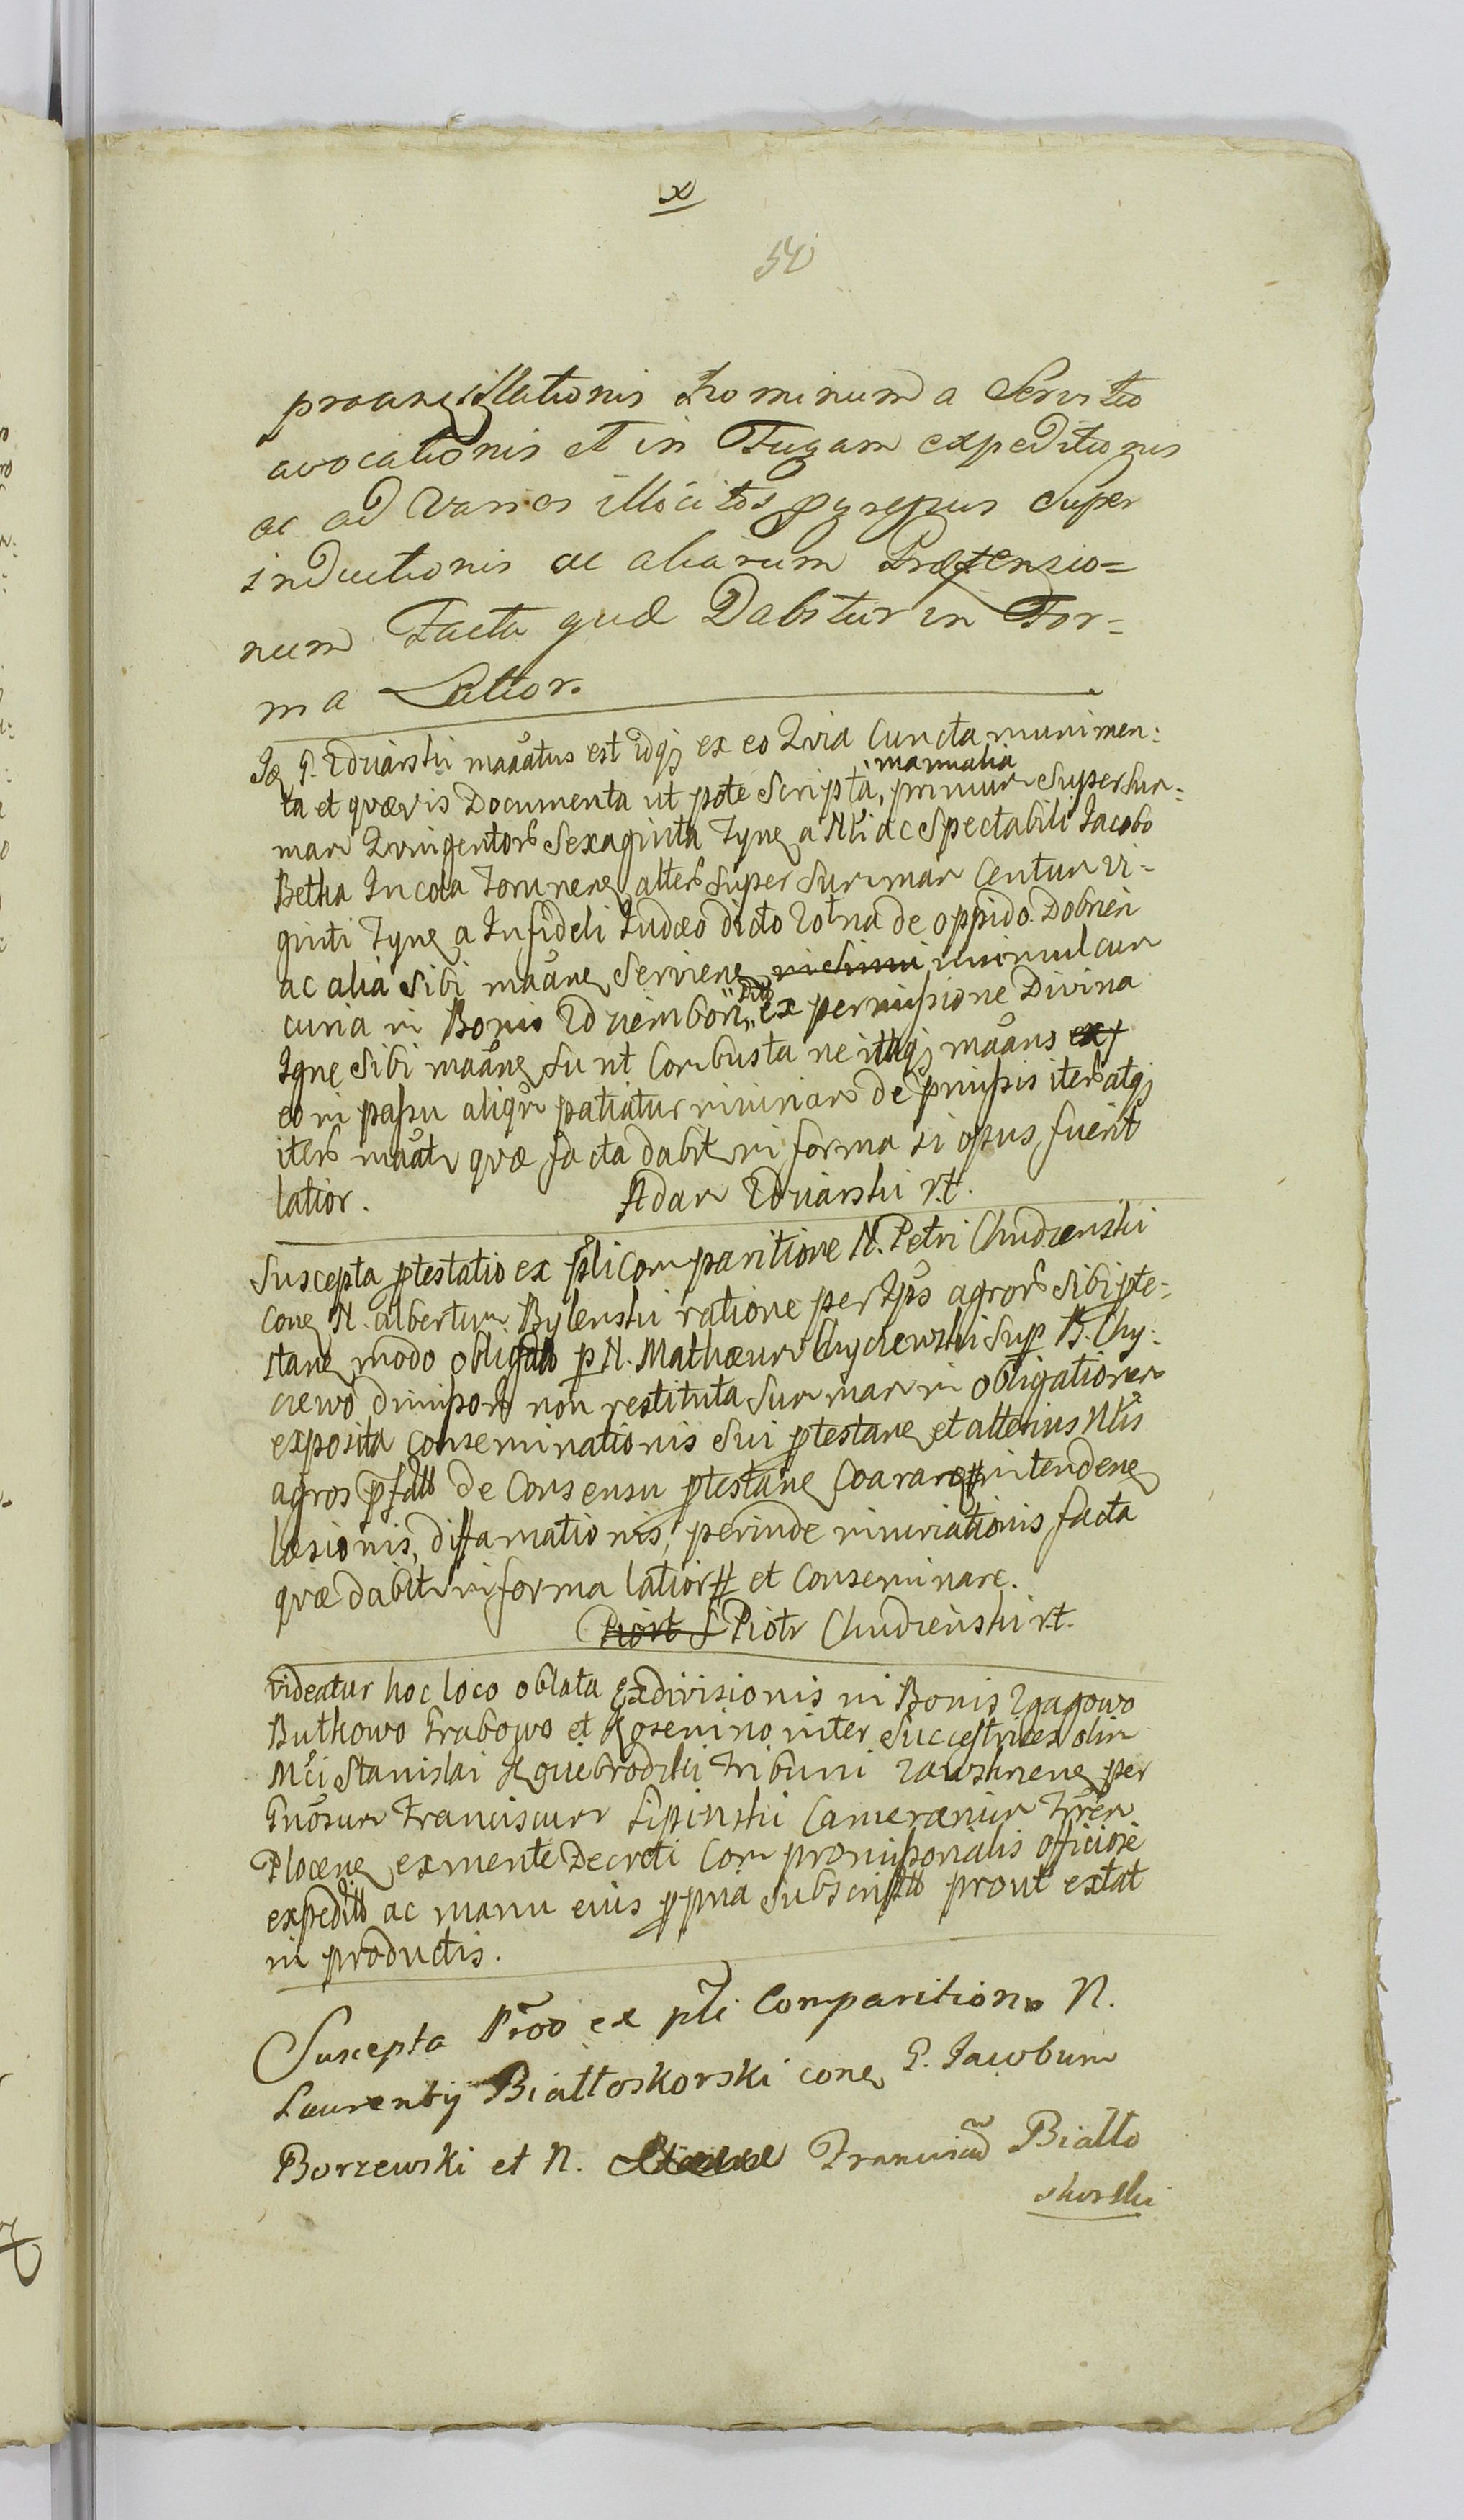 x
50
proancillationis Hominum a Servitio
avocationis et in Fugam expeditionis
ac ad varios illicitos Super
inductionis ac aliarum Prætensio=
num Facta quæ Dabitur in For=
ma Latior.
G. Zduański maãtus est idqȝ ex eo Qvia Cuncta munimen:
ta et quævis Documenta ut pote Scripta, manualia primum Super Sum:
mam Qvingentorũ Sexaginta Tynf a Nli ac Spectabili Jacobo
Betha Incola Torunen alterũ Super Summam Centum vi-
ginti Tynf a Infideli Judæo dicto de oppido Dobrień
ac alia Sibi maãn Servien unimul cum
curia in Bonis ex permissione Divina
Igne Sibi maãn sunt Combusta ne itaqȝ maãns
eo in passu aliqũ patiatur iniuriam de prmissis iterũ atqȝ
iterũ maãtr quæ facta dabitr in forma si opus fuerit
latior. Adam Zduański rt.
Suscepta ptestatio ex pli Comparitione N. Petri Chudzenski
Con N. albertum Bylenski ratione per Ips agrorũ Sibi pte-
stan modo obligato p N. Mathæum Chyczewski Sup B. Chy-
czewo dimissorũ non restituta Summam in obligationem
exposita Conseminationis Sui ptestan et alterius Nlis
agros pfatt de Consensu ptestan Coarare # intenden
læsionis, diffamationis, perinde iniuriationis facta
quæ dabitr in forma latior # et Conseminare.
Piort S Piotr Chudzieński rt.
videatur hoc loco oblata Exdivisionis in Bonis Zgagowo
Butkowo Grabowo et Kosemino inter Succestrices olim
Mci Stanislai Zguiebrodzki Tribuni Zawskrnen per
Gnõsum Franciscum Lipinski Camerarium Trrem
Plocen ex mente Decreti Compromissorialis officiose
expedito ac manu eius ppria Subscripto prout extat
in productis.
Suscepta Prõo ex pli Comparitione N.
Laurentij Białłoskorski con G. Jacobum
Borzewski et N. Francisũ Białło
skorski